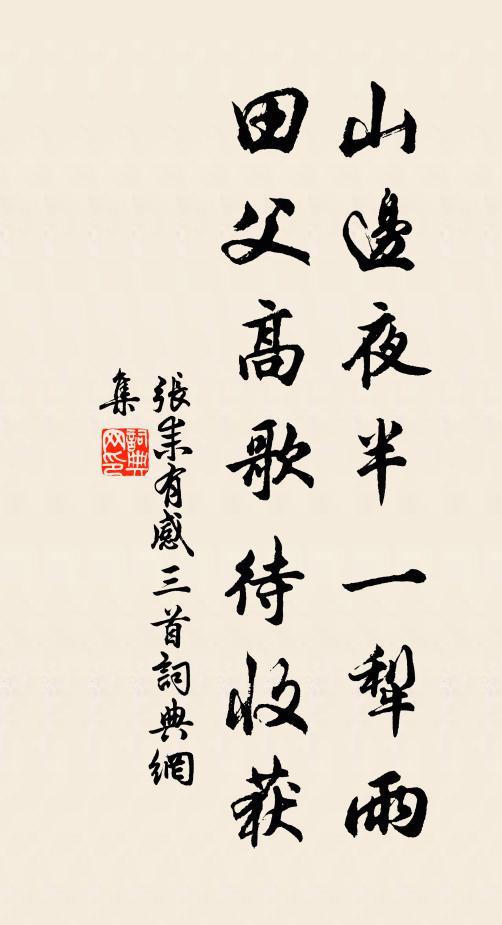 山邊夜半一犁雨
田父高歌待收获
張耒有感三首詞典網
集
詞典网印